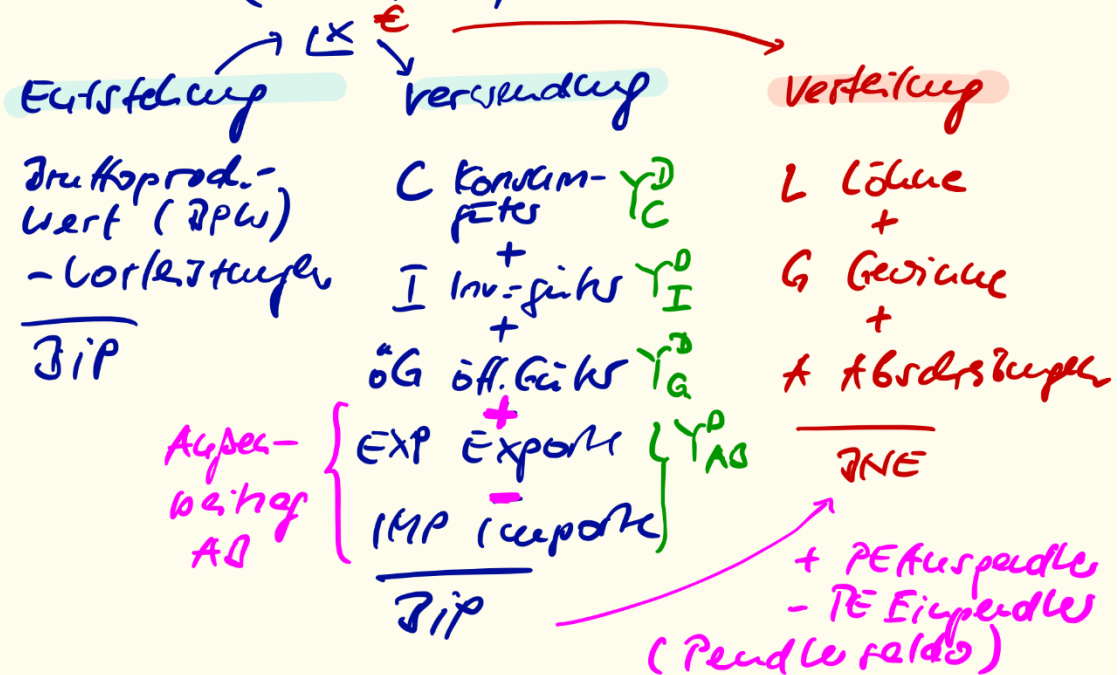 LX €
Entstehung
Bruttoprod.-
wert (BPW)
- Vorleistungen
BiP
Verwendung
C Konsum-
güter Y^D_C
+
I Inv.-güter Y^D_I
+
öG öff. Güter Y^D_G
+
EXP Exporte Y^D_AB
-
IMP Importe
BiP
Außen-
beitrag
AB
Verteilung
L Löhne
+
G Gewinne
+
A Abschreibungen
BNE
+ PE Auspendler
- PE Einpendler
(Pendlersaldo)